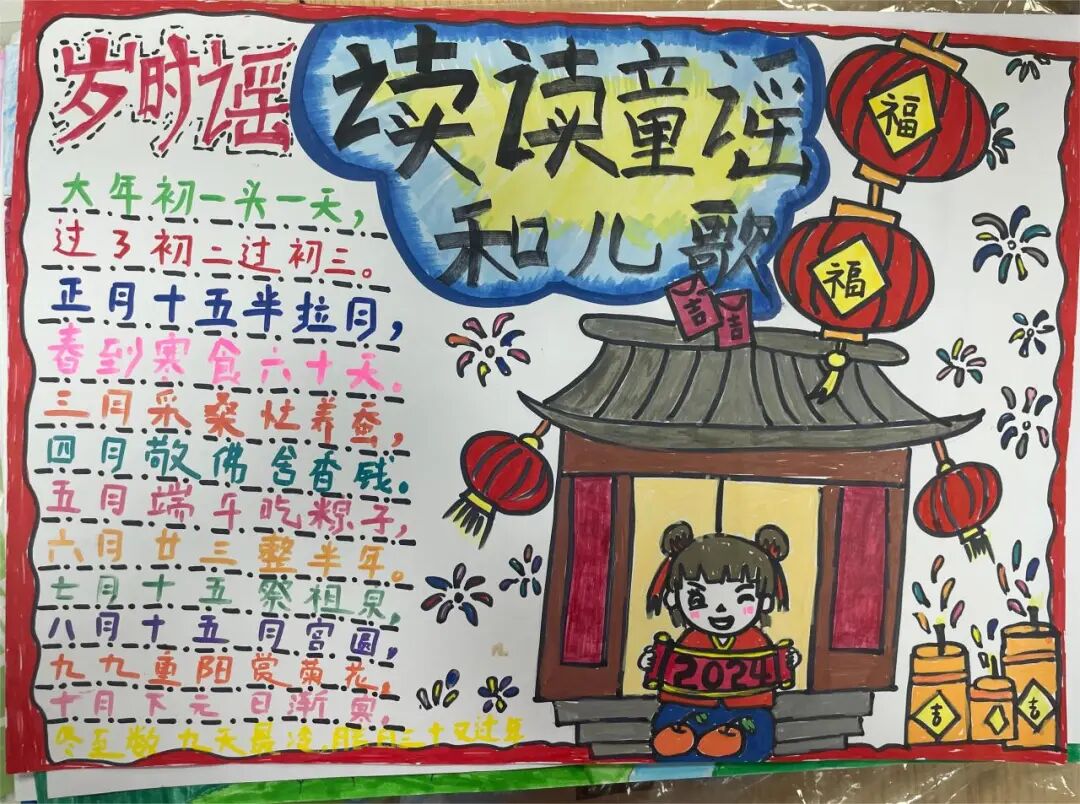 岁时谣
读读童谣
和儿歌
大年初一头一天,
过了初二过初三。
正月十五半拉月,
春到寒食六十天。
三月采桑灶养蚕,
四月敬佛舍香钱。
五月端午吃粽子,
六月廿三整半年。
七月十五祭祖泉,
八月十五月宫圆,
九九重阳赏菊花,
十月下元日渐寒,
冬至数九天最冷,腊月三十又过年
福
福
吉
吉
2024
吉
吉